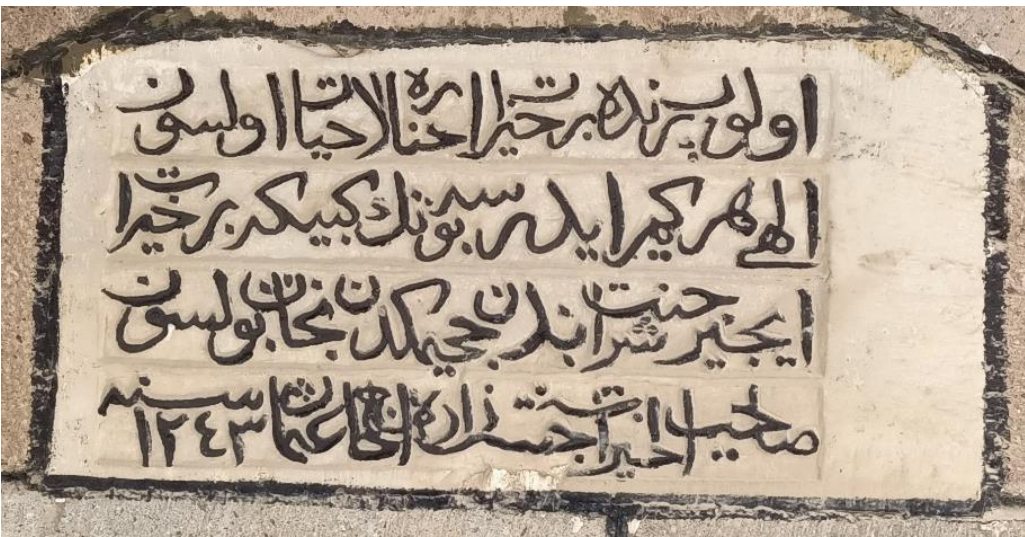 اولوب پرنده بر خيرات حيات اولسون
الهي هر كيم ايدرسه بونك كبيكه بر خيرات
ايجير جنت شرابندن جحيمكدن نجات بولسون
صاحب الخيرات زاده الحاج عثمان سنه ١٢٤٣